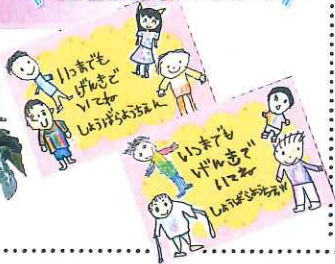 いつまでも
げんきで
いてね
しょうばらようちえん
いつまでも
げんきで
いてね
しょうばらようちえん